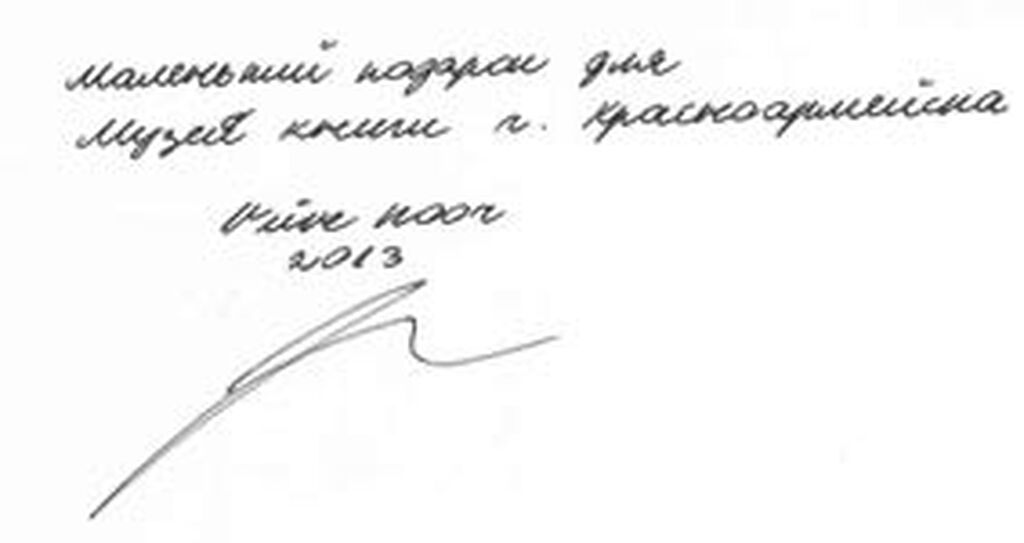 Маленький подарок для
Музея книги г. Красноармейска
Viive Noor
2013